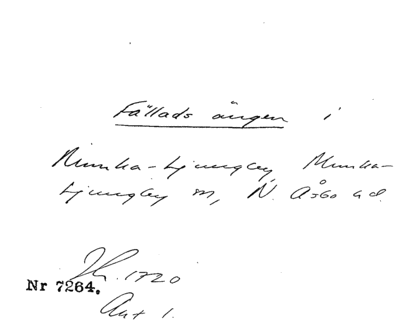 Fällads ängen i
Munka-Ljungby Munka-
Ljungby sn, N. Åsbo hd.
1720
Nr 7264.
Akt 1.